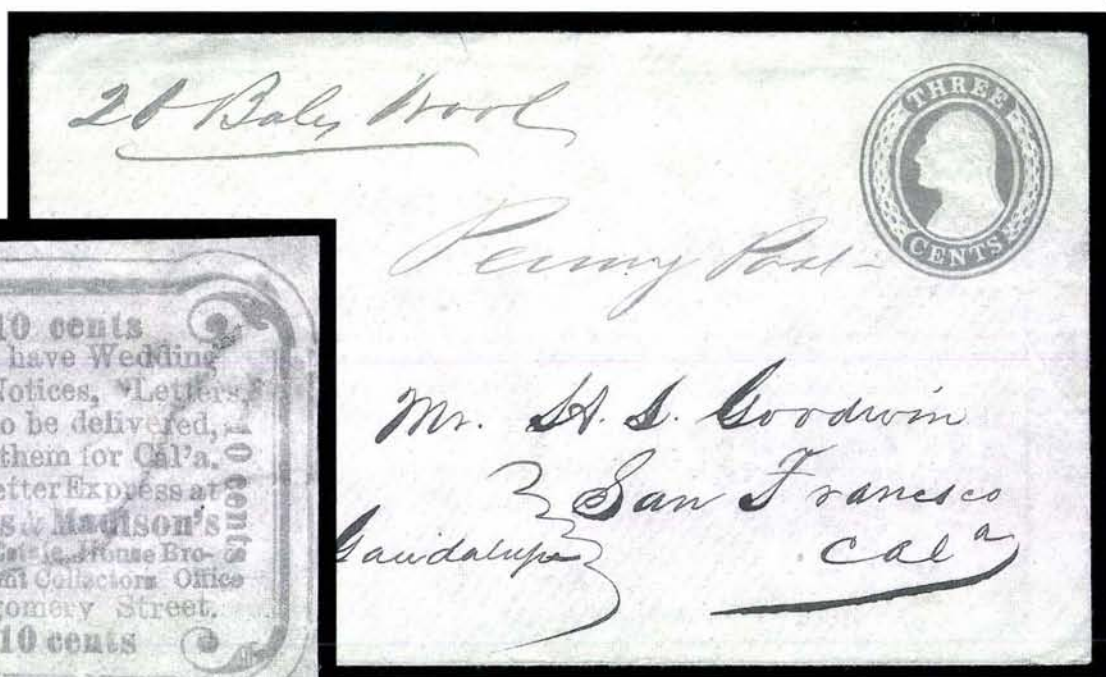 Bales Wool
THREE
CENTS
Penny Post
Mr. H. S. Goodwin
San Francisco
Cala
10 cents
have Wedding
Notices, Letters,
to be delivered,
them for Cal'a.
Letter Express at
& Madison's
House Bro-
Collectors Office
gomery Street.
10 cents
10 cents